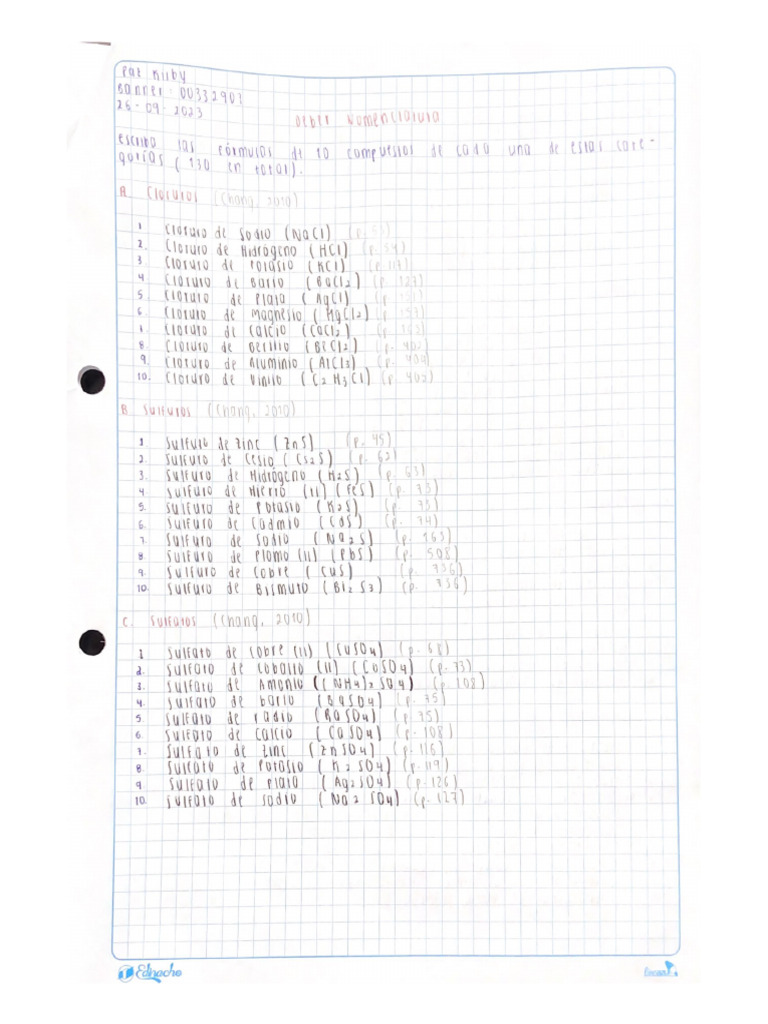 Pat Kirby
Banner: 00332903
26-09-2023
Deber Nomenclatura
Escriba las fórmulas de 10 compuestos de cada una de estas cate-
gorías (130 en total).
A. Cloruros (Chang, 2010)
1 Cloruro de Sodio (NaCl) (p. 53)
2. Cloruro de Hidrógeno (HCl) (p. 54)
3 Cloruro de Potasio (KCl) (p. 117)
4 Cloruro de Bario (BaCl2) (p. 127)
5 Cloruro de Plata (AgCl) (p.
6 Cloruro de Magnesio (MgCl2) (p. 157)
Cloruro de Calcio (CaCl2) (p. 163)
8 Cloruro de Berilio (BeCl2) (p. 402)
9. Cloruro de Aluminio (AlCl3) (p. 404)
10. Cloruro de Vinilo (C2H3Cl) (p. 402)
B Sulfuros (Chang, 2010)
1 Sulfuro de Zinc (ZnS) (p. 45)
2. Sulfuro de Cesio (Cs2S) (p. 62)
3. Sulfuro de Hidrógeno (H2S) (p. 63)
4 Sulfuro de Hierro (II) (FeS) (p. 73)
5. Sulfuro de Potasio (K2S) (p. 73)
6. Sulfuro de Cadmio (CdS) (p. 74)
7. Sulfuro de Sodio (Na2S) (p. 363)
8 Sulfuro de Plomo (II) (PbS) (p. 508)
9 Sulfuro de Cobre (CuS) (p. 736)
10. Sulfuro de Bismuto (Bi2S3) (p. 736)
C. Sulfatos (Chang, 2010)
1 Sulfato de Cobre (II) (CuSO4) (p. 68)
2. Sulfato de Cobalto (II) (CoSO4) (p. 73)
3. Sulfato de Amonio ((NH4)2SO4) (p. 108)
4. Sulfato de bario (BaSO4) (p. 75)
5 Sulfato de radio (RaSO4) (p. 75)
6 Sulfato de Calcio (CaSO4) (p. 108)
7. Sulfato de Zinc (ZnSO4) (p. 116)
8 Sulfato de Potasio (K2SO4) (p. 119)
9 Sulfato de Plata (Ag2SO4) (p. 126)
10. Sulfato de sodio (Na2SO4) (p. 127)
Ednacho